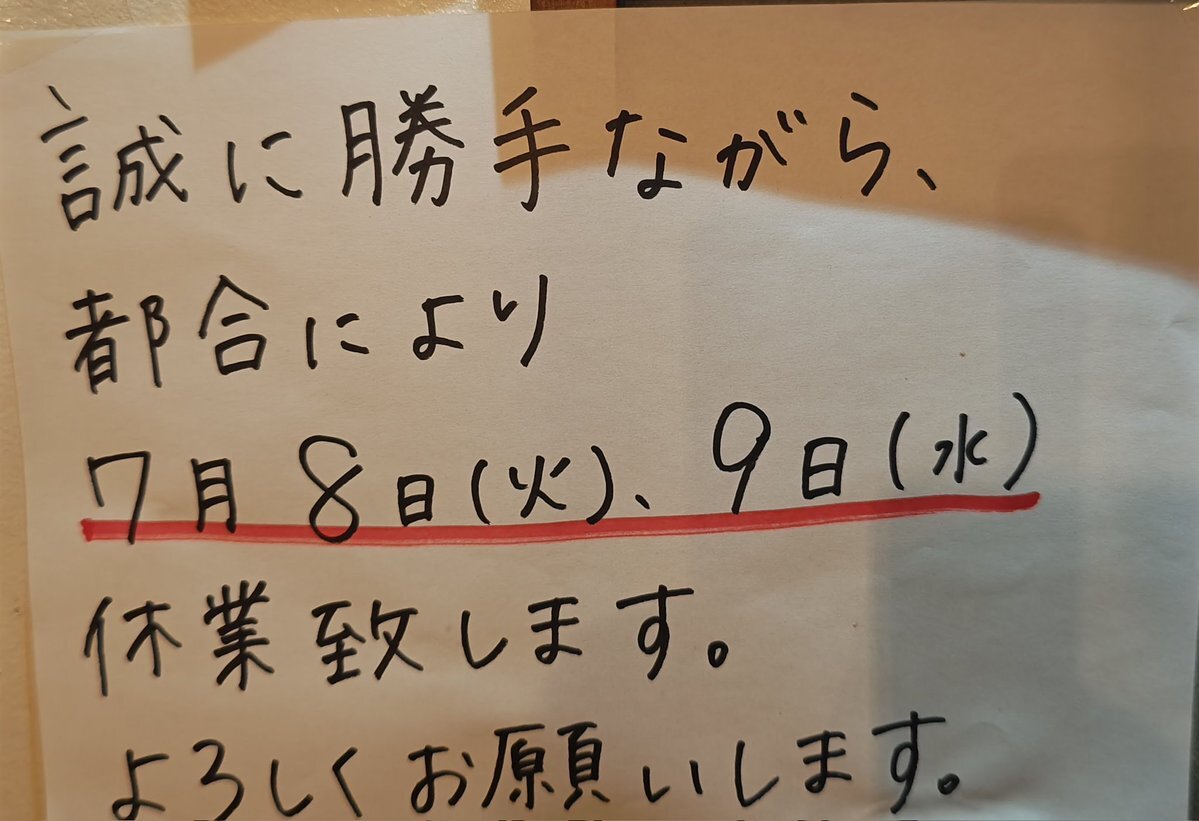 誠に勝手ながら、
都合により
7月8日(火)、9日(水)
休業致します。
よろしくお願いします。